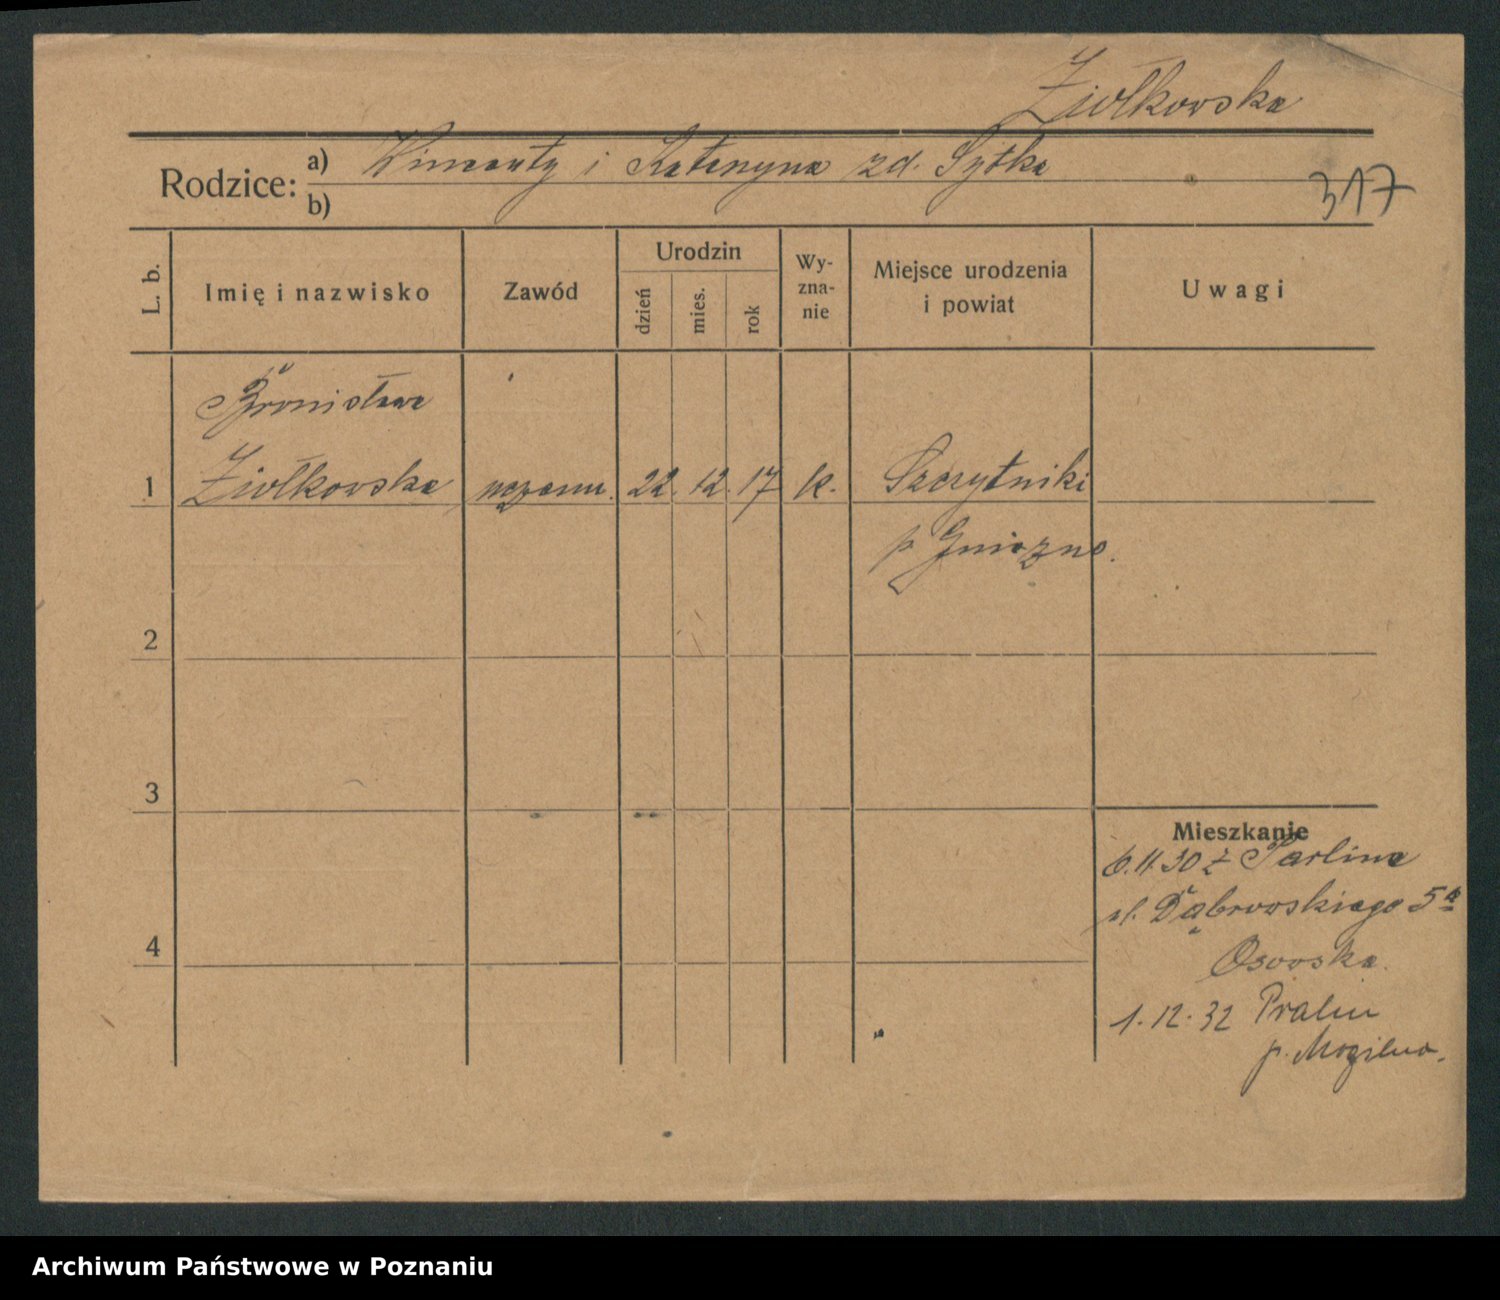 Ziołkowska
Rodzice: a) Wincenty i Katarzyna zd. Sytka
b)
317
L. b. Imię i nazwisko Zawód Urodzin dzień mies. rok Wy-zna-nie Miejsce urodzenia i powiat Uwagi
Bronisława
1 Ziołkowska uczenn. 22. 12. 17 k. Szczytniki
p Gniezno.
2
3
Mieszkanie
6.11.30 z Parlina
ul. Dąbrowskiego 5a
4
Osowska.
1.12.32
p. Mogilno.
Archiwum Państwowe w Poznaniu